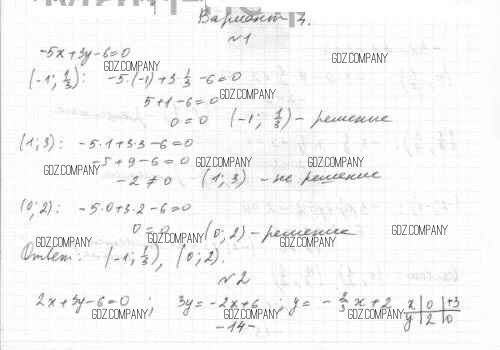 Вариант 3.
№1
-5x+3y-6=0
GDZ.COMPANY GDZ.COMPANY
(-1; 1/3): -5·(-1)+3·1/3-6=0
GDZ.COMPANY
5+1-6=0
0=0 (-1; 1/3) - решение
(1; 3): -5·1+3·3-6=0
GDZ.COMPANY -5+9-6=0 GDZ.COMPANY GDZ.COMPANY
-2≠0 (1; 3) - не решение
(0; 2): -5·0+3·2-6=0
0=0 (0; 2) - решение
GDZ.COMPANY GDZ.COMPANY GDZ.COMPANY GDZ.COMPANY
Ответ: (-1; 1/3), (0; 2).
№2
2x+3y-6=0; 3y=-2x+6; y=-2/3x+2 x 0 +3
y 2 0
GDZ.COMPANY GDZ.COMPANY GDZ.COMPANY
-14-